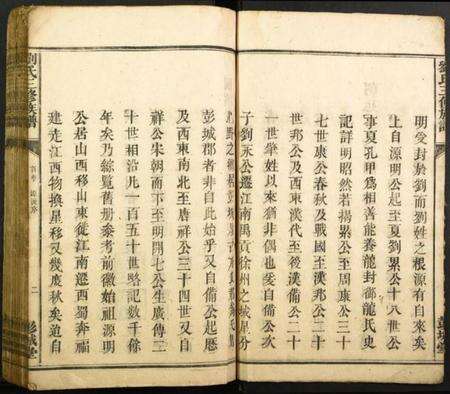 劉氏三修族譜
彭城堂
明受封於劉而劉姓之根源有自來矣
上自源明公起至夏劉累公十八世公
事夏孔甲為相善能養龍封鄒龍氏史
記詳明昭然若揚累公至周康公三十
七世康公春秋及戰國至漢邦公二十
世邦公及西東漢代至後漢備公二十
一世肇姓以來猶非偶也爰自備公次
子劉永公遷江南禹貢徐州之城星分
彭城郡者非自此始乎又自備公起歷
及西東南北至唐祥公三十四世又自
祥公宋朝而下至明開七公生廣傳二
十世相沿九一百五十世略記數千餘
年矣乃綜覽舊册參考前徽始祖源明
公居山西移山東徙江南遷西蜀奔福
建走江西物換星移又幾度秋矣追自
劉氏三修族譜
二
彭城堂